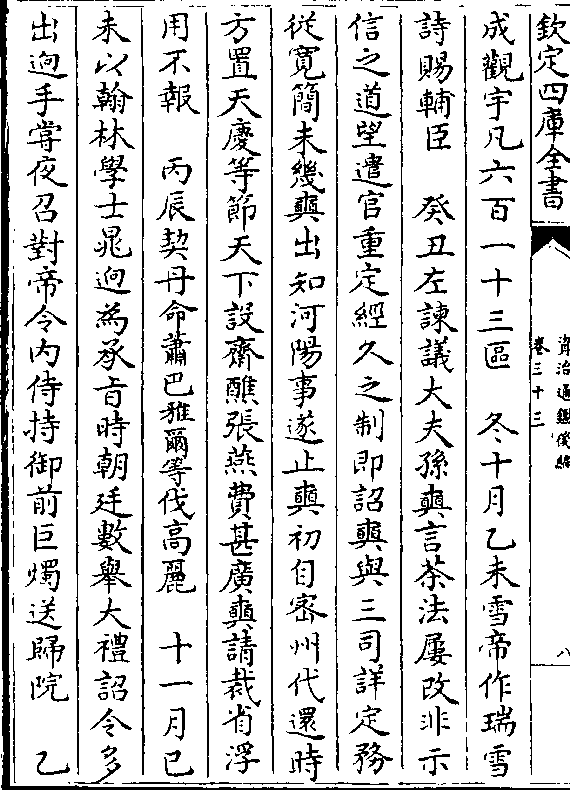 欽定四庫全書
資治通鑑後編
卷三十三
八
成觀宇凡六百一十三區　冬十月乙未雪帝作瑞雪
詩賜輔臣　癸丑左諫議大夫孫奭言茶法屢改非示
信之道望遣官重定經久之制即詔奭與三司詳定務
從寛簡未幾奭出知河陽事遂止奭初自宻州代還時
方置天慶等節天下設齋醮張燕費甚廣奭請裁省浮
用不報　丙辰契丹命蕭巴雅爾等伐高麗　十一月己
未以翰林學士晁逈為承㫖時朝廷數舉大禮詔令多
出逈手嘗夜召對帝令内侍持御前巨燭送歸院　乙